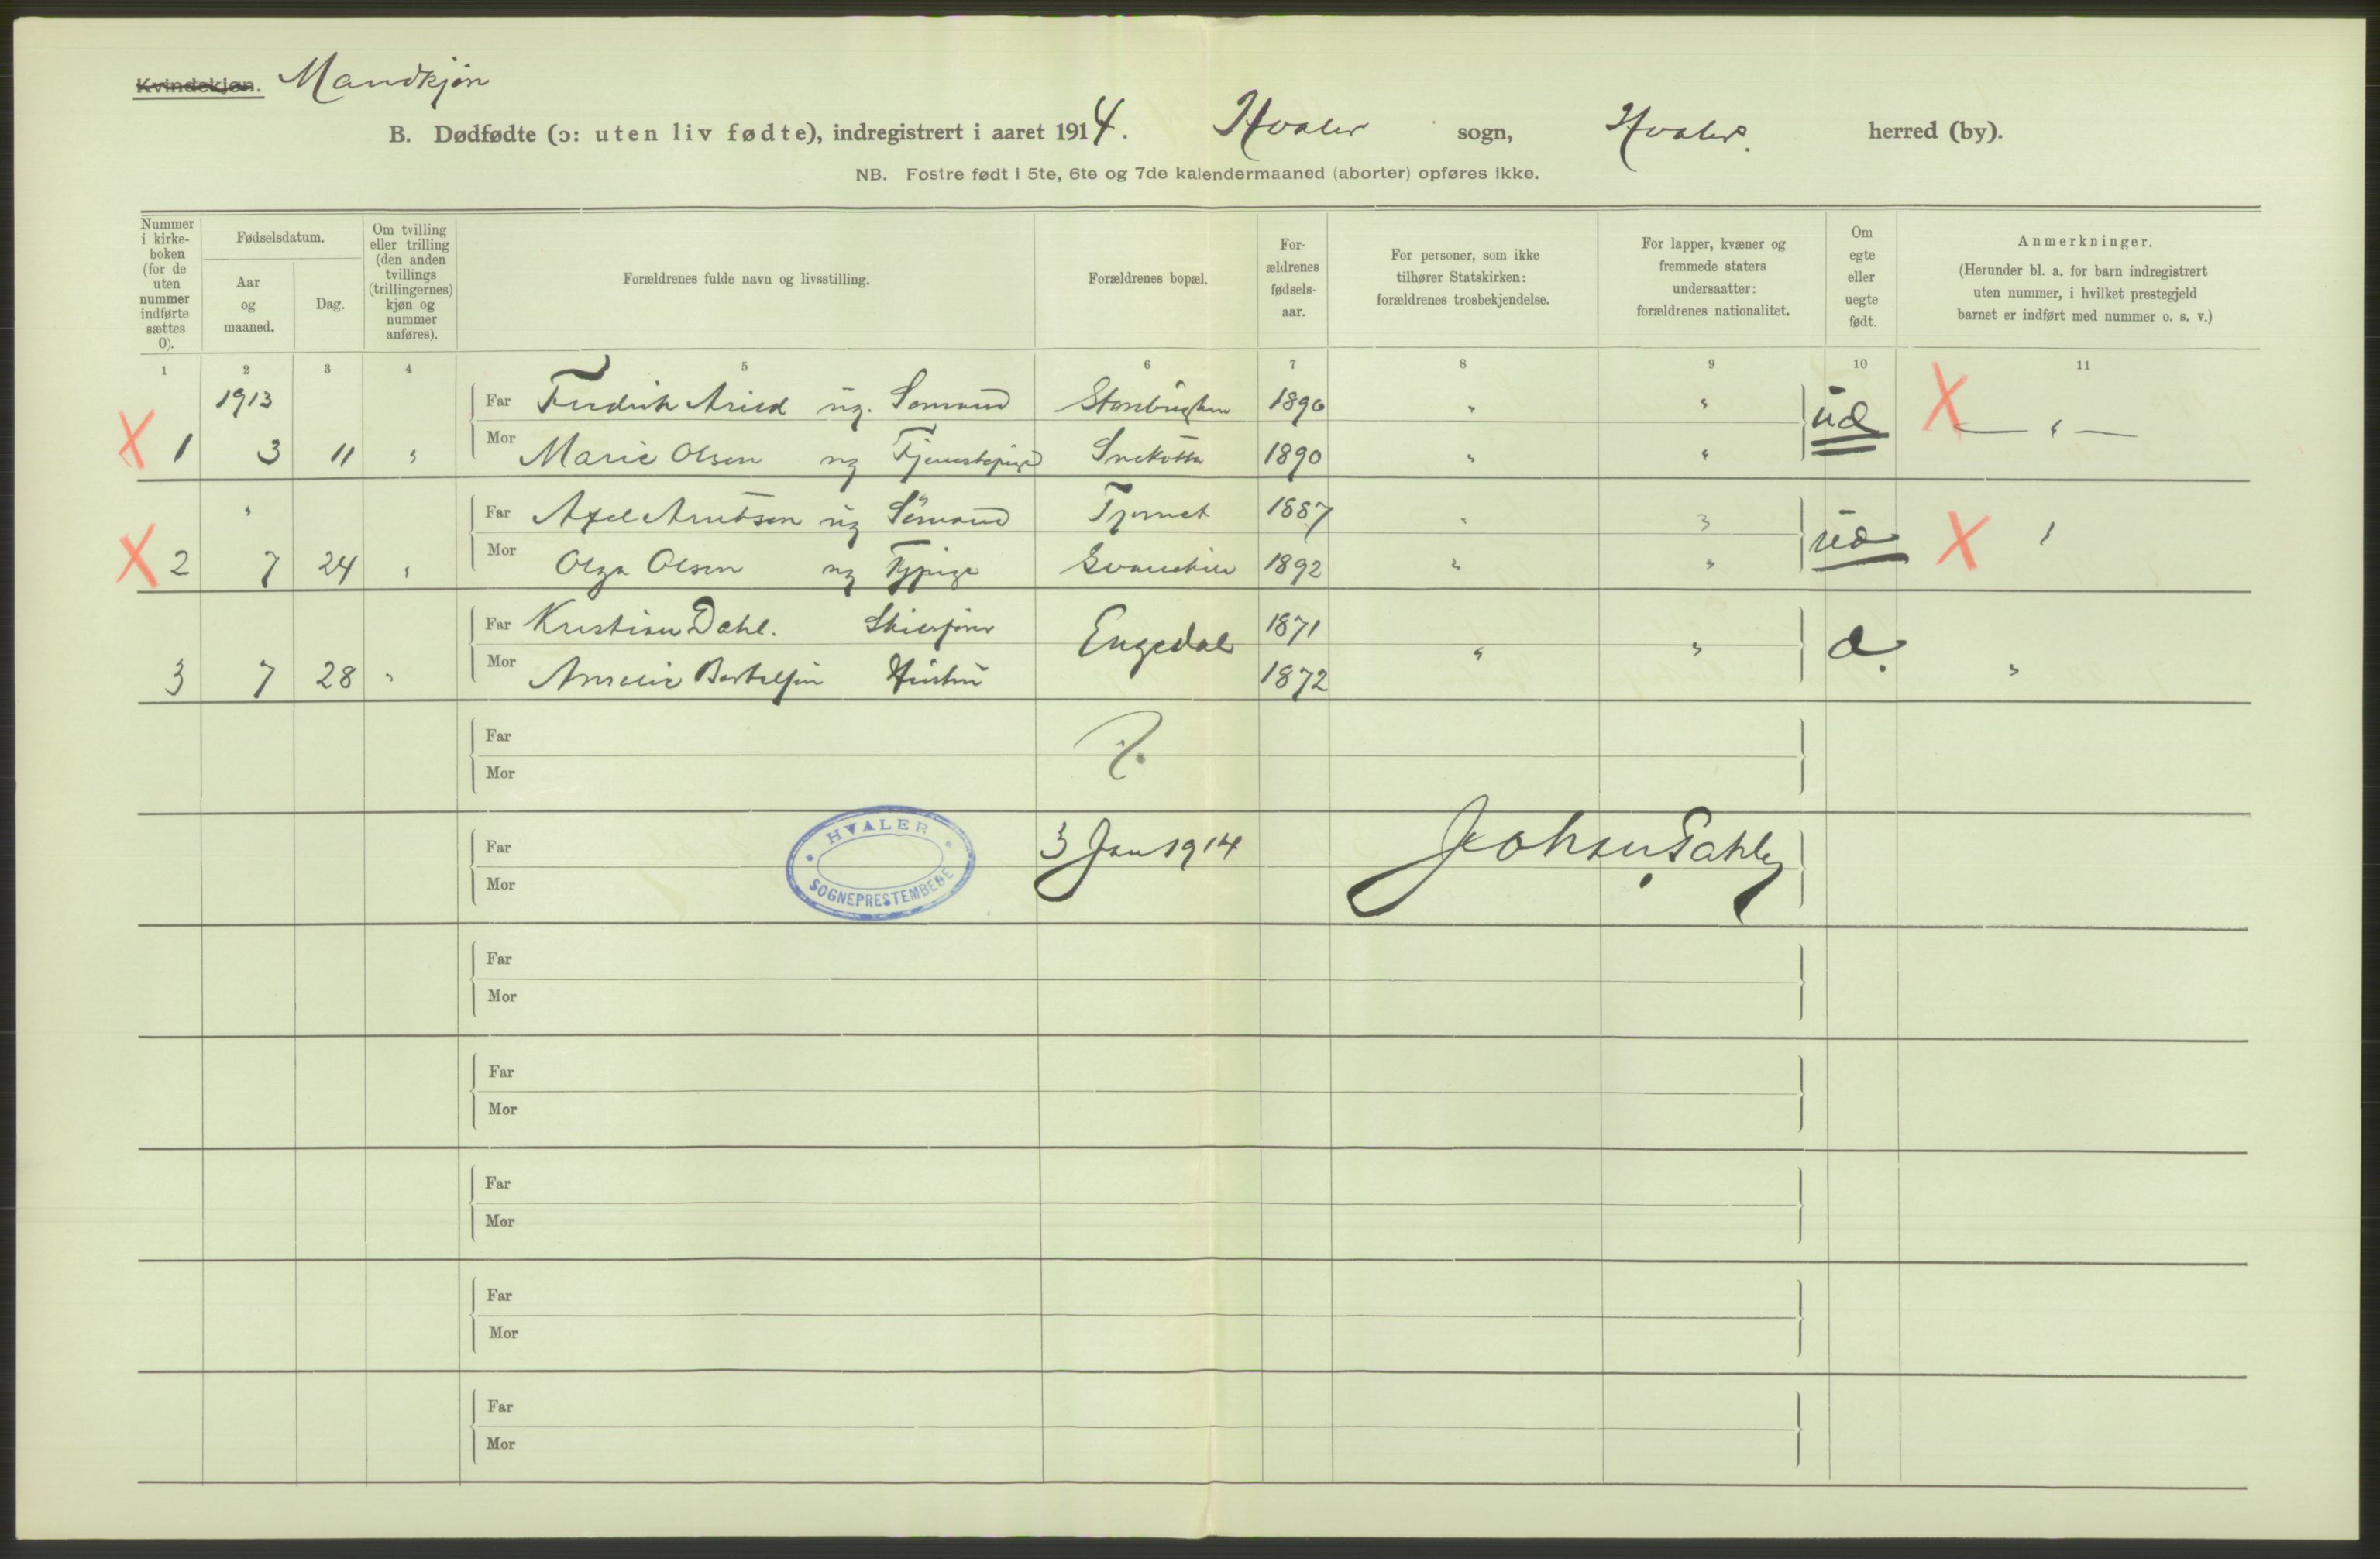 Kvindekjøn. Mandkjøn
B. Dødfødte (ɔ: uten liv fødte), indregistrert i aaret 1914. Hvaler sogn, Hvaler. herred (by).
NB. Fostre født i 5te, 6te og 7de kalendermaaned (aborter) opføres ikke.
Nummer
i kirke-
boken
(for de
uten
nummer
indførte
sættes
0).
Fødselsdatum.
Aar
og
maaned.
Dag.
Om tvilling
eller trilling
(den anden
tvillings
(trillingernes)
kjøn og
nummer
anføres).
Forældrenes fulde navn og livsstilling.
Forældrenes bopæl.
For-
ældrenes
fødsels-
aar.
For personer, som ikke
tilhører Statskirken:
forældrenes trosbekjendelse.
For lapper, kvæner og
fremmede staters
undersaatter:
forældrenes nationalitet.
Om
egte
eller
uegte
født.
Anmerkninger.
(Herunder bl. a. for barn indregistrert
uten nummer, i hvilket prestegjeld
barnet er indført med nummer o. s. v.)
1 2 3 4 5 6 7 8 9 10 11
1913 Far Fredrik ug. Sømand 1890 " "
X 1 3 11 " Mor Marie Olsen ug Tjenestepige 1890 " " X — " —
" Far Axel Arntsen ug Sømand 1887 "
X 2 7 24 " Mor Olga Olsen ug Tjpige 1892 " " X "
Far Kristian Dahl. 1871
3 7 28 " Mor Amelie Hustru Engedal 1872 " " "
Far
Mor
HVALER
SOGNEPRESTEMBEDE
Far 3 Jan 1914 Johan
Mor
Far
Mor
Far
Mor
Far
Mor
Far
Mor
Far
Mor